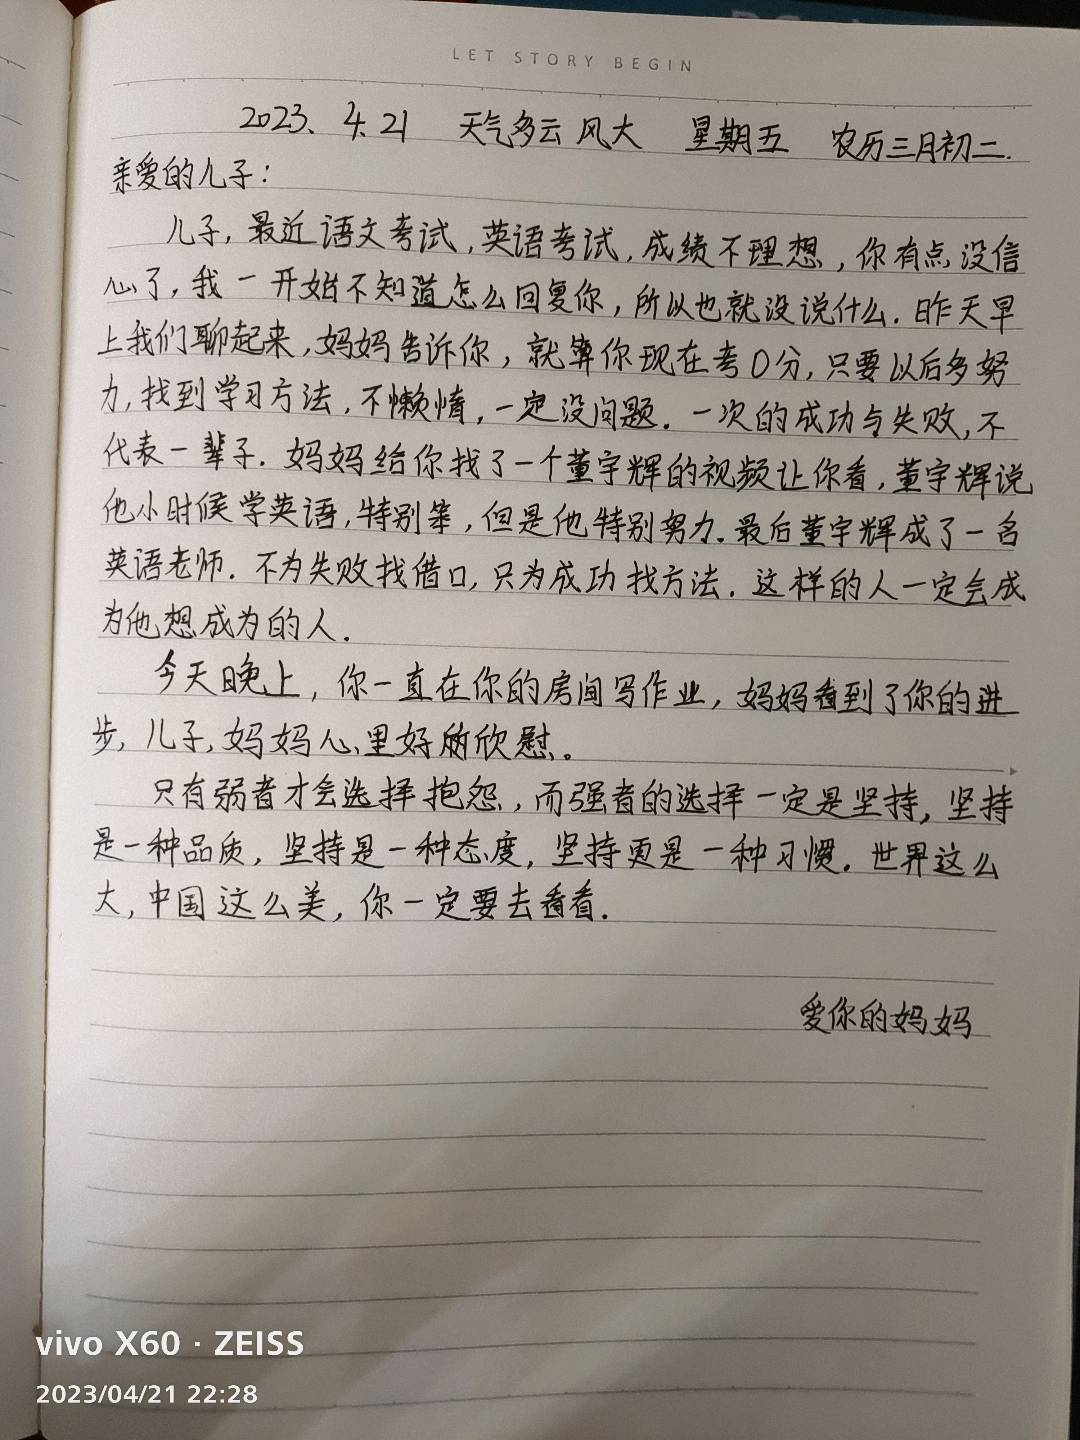 LET STORY BEGIN
2023、4.21 天气多云 风大 星期五 农历三月初二.
亲爱的儿子：
儿子，最近语文考试，英语考试，成绩不理想，你有点没信
心了，我一开始不知道怎么回复你，所以也就没说什么.昨天早
上我们聊起来，妈妈告诉你，就算你现在考0分，只要以后多努
力，找到学习方法，不懒惰，一定没问题.一次的成功与失败，不
代表一辈子.妈妈给你找了一个董宇辉的视频让你看，董宇辉说
他小时候学英语，特别笨，但是他特别努力.最后董宇辉成了一名
英语老师.不为失败找借口，只为成功找方法.这样的人一定会成
为他想成为的人.
今天晚上，你一直在你的房间写作业，妈妈看到了你的进
步，儿子，妈妈心里好欣慰。
只有弱者才会选择抱怨，而强者的选择一定是坚持，坚持
是一种品质，坚持是一种态度，坚持更是一种习惯.世界这么
大，中国这么美，你一定要去看看.
爱你的妈妈
vivo X60 · ZEISS
2023/04/21 22:28